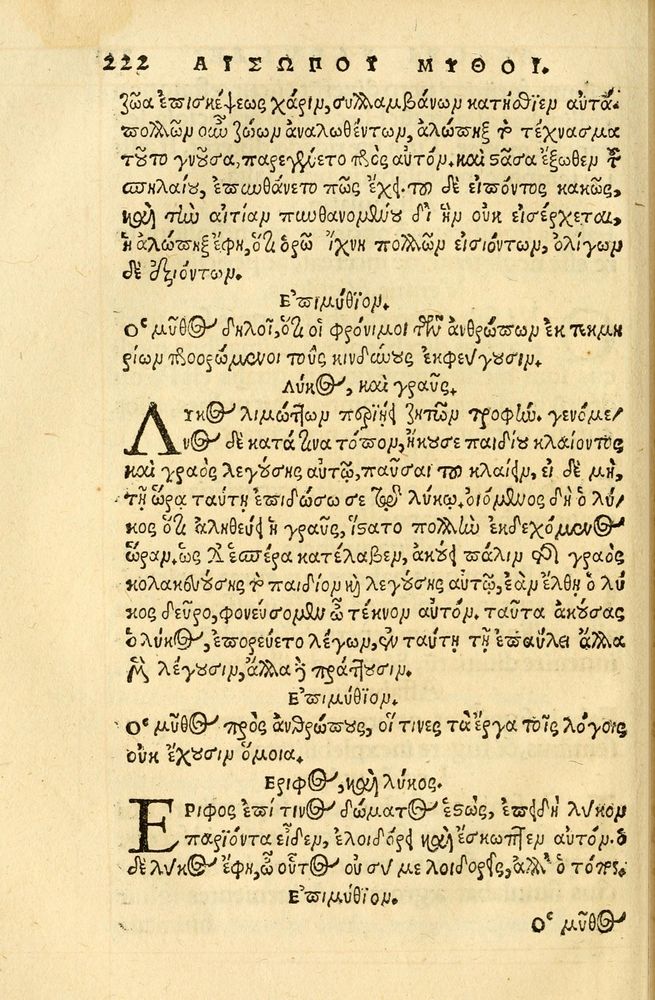 222 ΑΙΣΩΠΟΥ ΜΥΘΟΙ.
ζῶα ἐπισκέψεως χάριν, συλλαμβάνων κατήσθιεν αὐτά.
πολλῶν οὖν ζώων ἀναλωθέντων, ἀλώπηξ τὸ τέχνασμα
τοῦτο γνοῦσα, παρεγένετο πρὸς αὐτόν. καὶ στᾶσα ἔξωθεν τοῦ
σπηλαίου, ἐπυνθάνετο πῶς ἔχει. τοῦ δὲ εἰπόντος κακῶς,
καὶ τὴν αἰτίαν πυνθανομένου δι' ἣν οὐκ εἰσέρχεται,
ἡ ἀλώπηξ ἔφη, ὅτι ὁρῶ ἴχνη πολλῶν εἰσιόντων, ὀλίγων
δὲ ἐξιόντων.
Ἐπιμύθιον.
Ὁ μῦθος δηλοῖ, ὅτι οἱ φρόνιμοι τῶν ἀνθρώπων ἐκ τεκμη
ρίων προορώμενοι τοὺς κινδύνους ἐκφεύγουσιν.
Λύκος, καὶ γραῦς.
Λύκος λιμώττων περιῄει ζητῶν τροφήν. γενόμε/
νος δὲ κατά τινα τόπον, ἤκουσε παιδίου κλαίοντος
καὶ γραὸς λεγούσης αὐτῷ, παῦσαι τοῦ κλαίειν, εἰ δὲ μὴ,
τῇ ὥρᾳ ταύτῃ ἐπιδώσω σε τῷ λύκῳ. οἰόμενος δὴ ὁ λύ/
κος ὅτι ἀληθεύει ἡ γραῦς, ἵστατο πολλὴν ἐκδεχόμενος
ὥραν. ὡς δ' ἑσπέρα κατέλαβεν, ἀκούει πάλιν τῆς γραὸς
κολακευούσης τὸ παιδίον καὶ λεγούσης αὐτῷ, ἐὰν ἔλθῃ ὁ λύ
κος δεῦρο, φονεύσομεν ὦ τέκνον αὐτόν. ταῦτα ἀκούσας
ὁ λύκος, ἐπορεύετο λέγων, ἐν ταύτῃ τῇ ἐπαύλει ἄλλα
μὲν λέγουσιν, ἄλλα δὲ πράττουσιν.
Ἐπιμύθιον.
Ὁ μῦθος πρὸς ἀνθρώπους, οἵ τινες τὰ ἔργα τοῖς λόγοις
οὐκ ἔχουσιν ὅμοια.
Ἔριφος, καὶ λύκος.
ΕΡΙΦΟΣ ἐπί τινος δώματος ἑστὼς, ἐπειδὴ λύκον
παριόντα εἶδεν, ἐλοιδόρει καὶ ἔσκωπτεν αὐτόν. ὁ
δὲ λύκος ἔφη, ὦ οὗτος οὐ σύ με λοιδορεῖς, ἀλλ' ὁ τόπος.
Ἐπιμύθιον.
Ὁ μῦθος